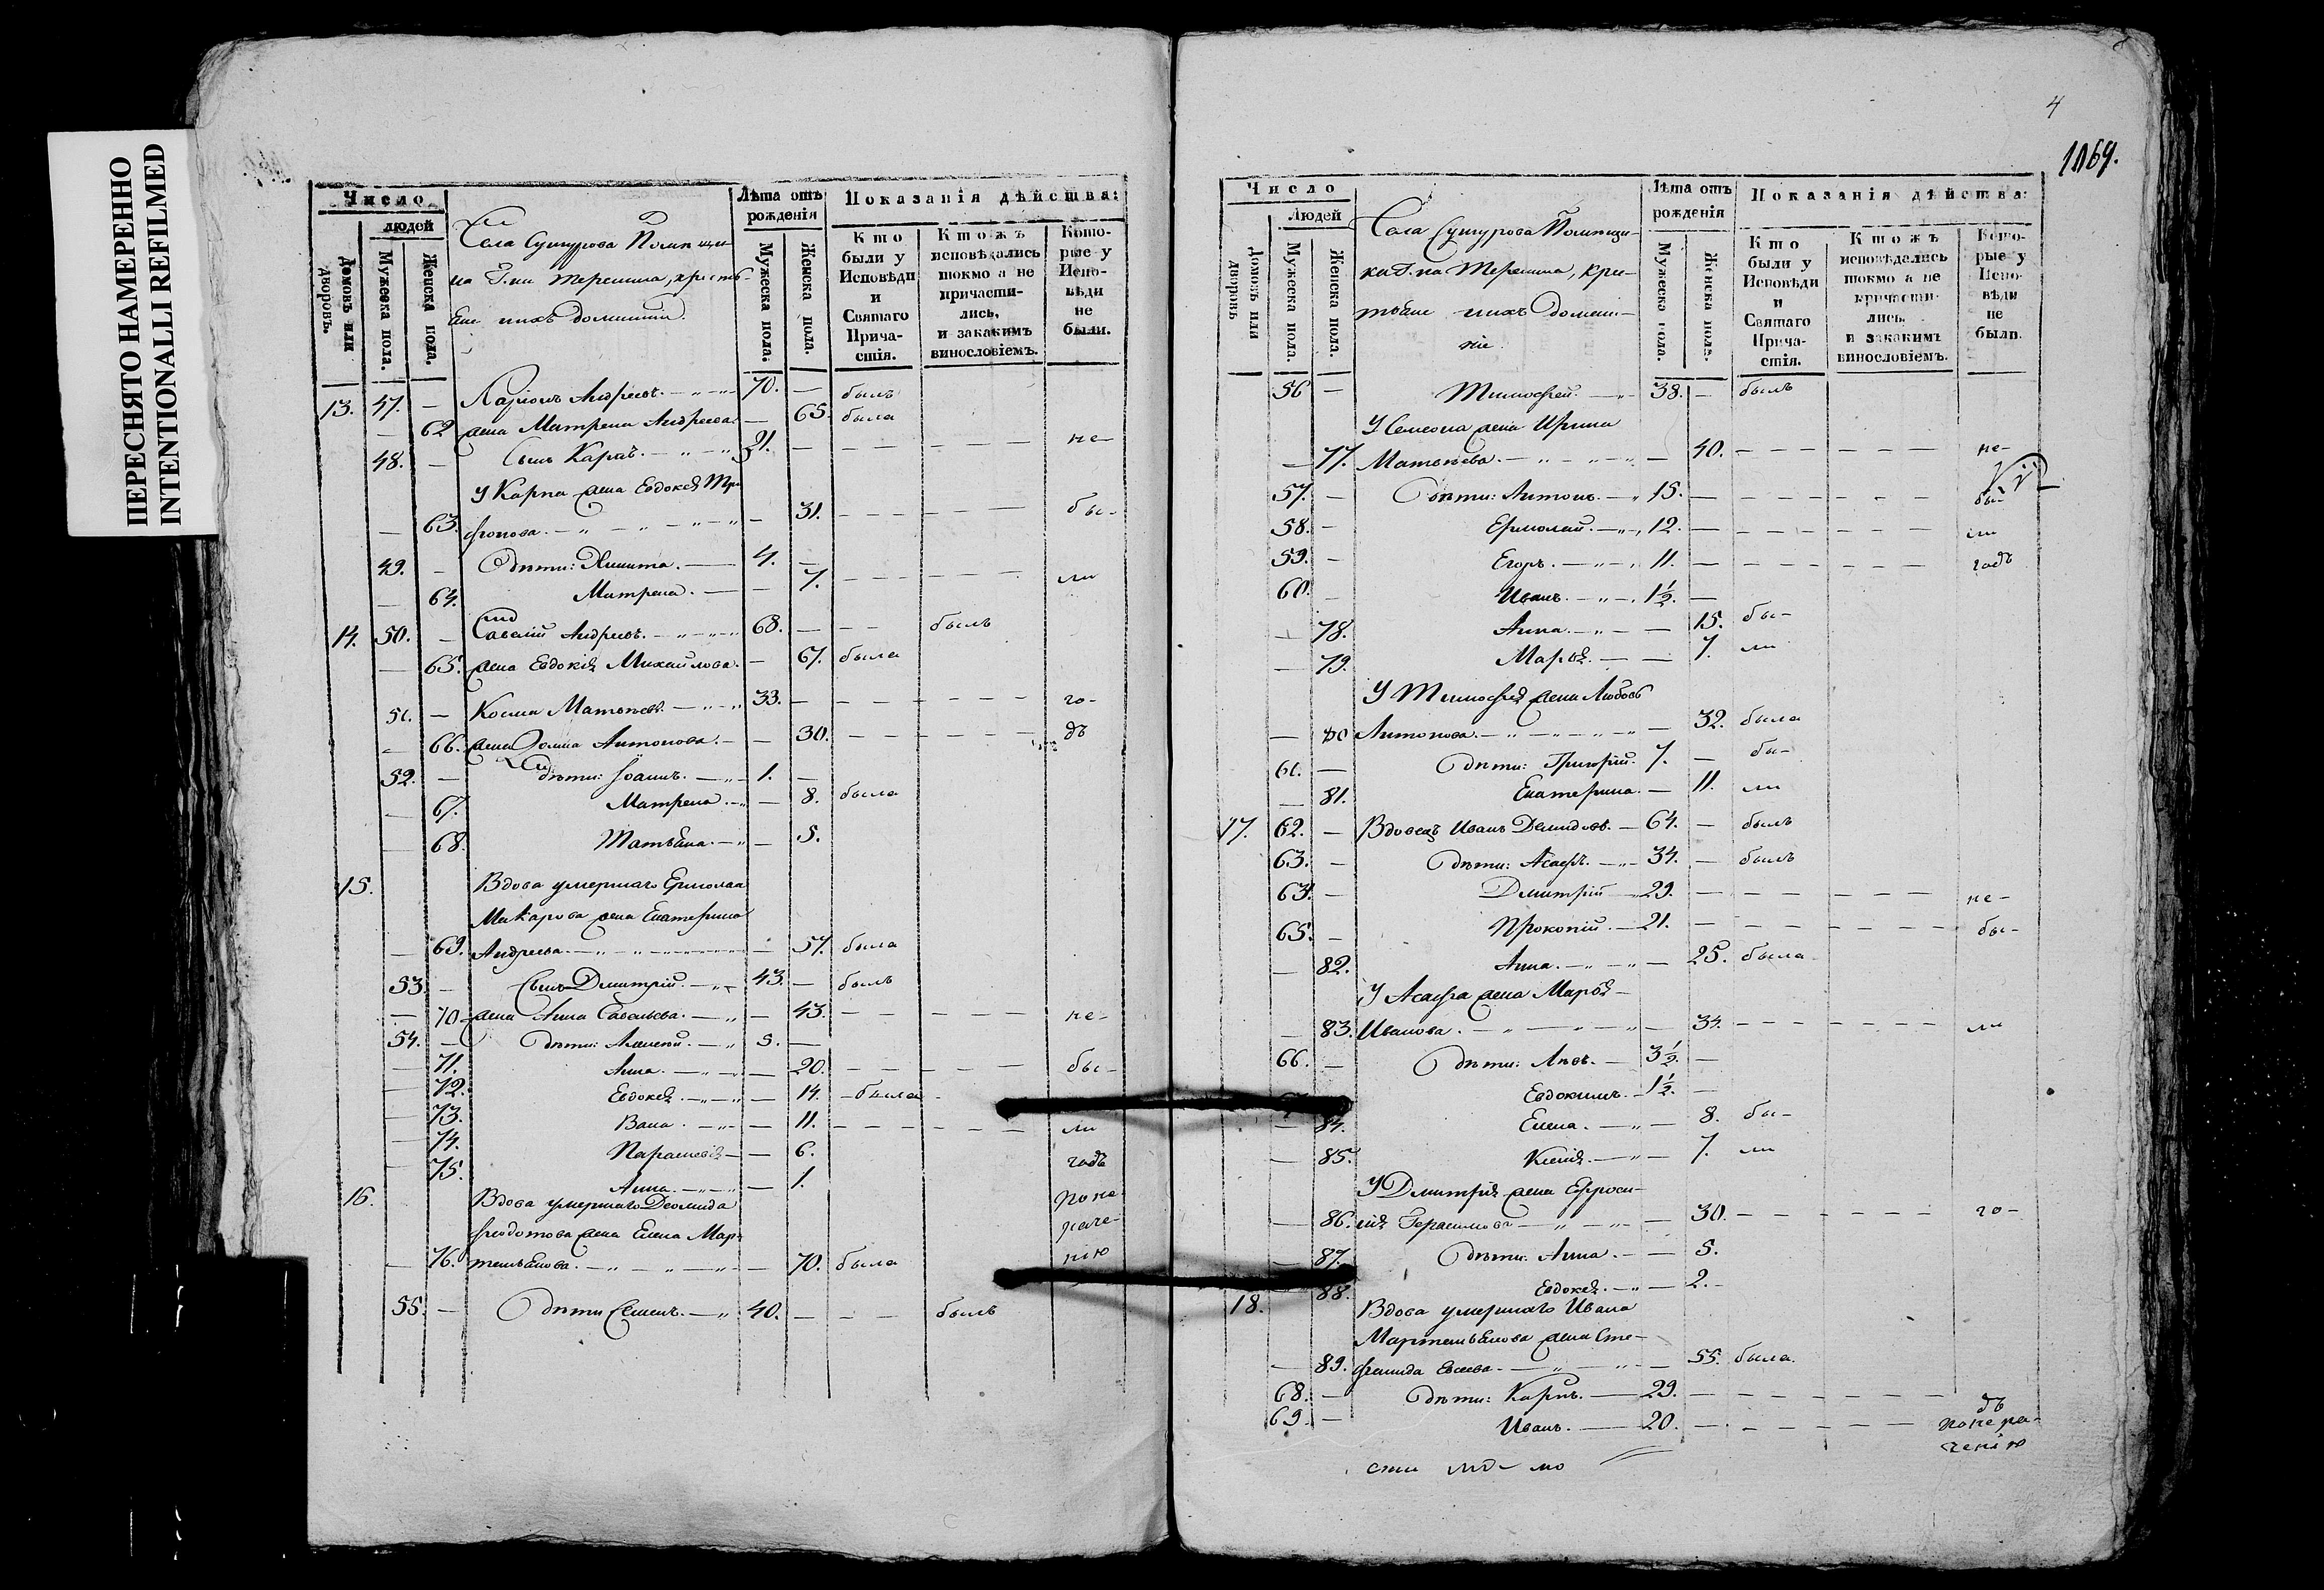 ПЕРЕСНЯТО НАМЕРЕННО
INTENTIONALLI REFILMED
Число
людей
Домовъ или дворовъ.
Мужеска пола.
Женска пола.
Села Сутурова Помпщи
ка Г.на Терешина, крестъ-
яне ихъ домашніи.
Лѣта отъ рожденія
Мужеска пола.
Женска пола.
Показанія дѣйства:
Кто были у Исповѣди и Святаго Причастія.
Ктожъ исповѣдались токмо а не причастились, и закакимъ винословіемъ.
Которые у Исповѣди не были.
13. 47. — Ларіонъ Андреевъ. 70. — былъ
— 62 жена Матрена Андреева. — 65. была
48. — Сынъ Карпъ. 31. — не-
У Карпа жена Евдокея Три
— 63. фонова. — 31. бы-
49. — дѣти: Никита. 4. —
— 64. Матрена. — 7. ли
14. 50. — Савелій Андреевъ. 68. — былъ
— 65. жена Евдокія Михайлова. — 67. была
51. — Косма Матвѣевъ. 33. — го-
— 66. жена Домна Антонова. — 30. дъ
52. — дѣти: Іоаннъ. 1. —
— 67. Матрена. — 8. была
— 68. Татьяна. — 5.
15. Вдова умершаго Ермолая
Макарова жена Екатерина
— 69. Андреева. — 57. была
53. — Сынъ Дмитрій. 43. — былъ
— 70. жена Анна Савельева. — 43. не-
54. — дѣти: Алексей. 5. —
— 71. Анна. — 20. бы-
— 72. Евдокея. — 14. была
— 73. Васа. — 11. ли
— 74. Парасковія — 6. годъ
— 75. Анна. — 1.
16. Вдова умершаго Деомида по не-
Феодотова жена Елена Мар- раче-
— 76. темьянова. — 70. была нію
55. — дѣти Семенъ. 40. — былъ
4
1069.
Число
Людей
Домовъ или дворовъ
Мужеска пола.
Женска пола.
Села Сутурова Помпщи-
ка Г.на Терешина, кре-
стьяне ихъ домаш-
ніе.
Лѣта отъ рожденія
Мужеска пола.
Женска пола.
Показанія дѣйства:
Кто были у Исповѣди и Святаго Причастія.
Ктожъ исповѣдались токмо а не причастились, и закакимъ винословіемъ.
Которые у Исповѣди не были.
56 — Тимофей. 38. — былъ
У Семеона жена Ирина
— 77. Матвѣева. — 40. не-
57. — дѣти: Антонъ. 15. — бы-
58. — Ермолай. 12. — ли
59. — Егоръ. 11. — годъ
60. — Иванъ. 1½. —
— 78. Анна. — 15. бы-
— 79. Марья. — 7. ли
У Тимофея жена Любовь
— 80 Антонова. — 32. была
61. — дѣти: Григорій. 7. — бы-
— 81. Екатерина. — 11. ли
17. 62. — Вдовецъ Иванъ Демидовъ. 64. — былъ
63. — дѣти: Асафъ. 34. — былъ
64. — Дмитрій 29. — не-
65. — Прокопій. 21. — бы-
— 82. Анна. — 25. была
У Асафа жена Марья
— 83. Иванова. — 34. ли
66. — дѣти: Левъ. 3½. —
Евдокимъ. 1½. —
— 84. Елена. — 8. бы-
— 85. Ксенія. — 7. ли
У Дмитрія жена Ефроси-
— 86. нія Герасимова — 30. го-
— 87. дѣти: Анна. — 5.
88. Евдокея. — 2.
18. Вдова умершаго Ивана
Мартемьянова жена Сте-
— 89. фанида Евсеева. — 55. была.
68. — дѣти: Карпъ. 29. — дъ
69. — Иванъ. 20. — понера-
ченію